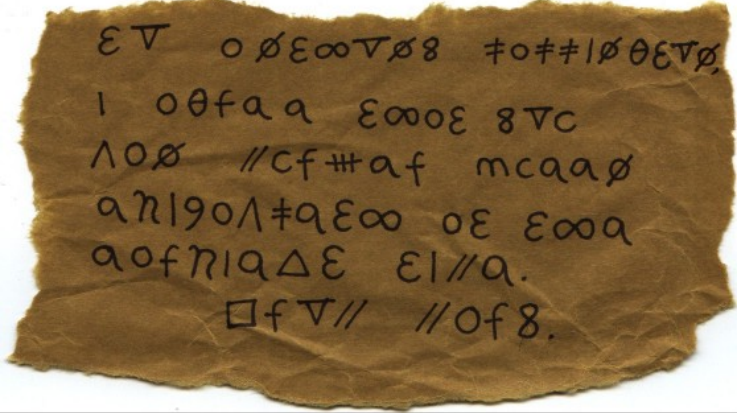 Ɛ ∇ o ø Ɛ ∞ ∇ ø 8 ‡ o ‡ ‡ l ø θ Ɛ ∇ ø,
l o θ f a a Ɛ ∞ o Ɛ 8 ∇ c
Λ o ø // c f ⧻ a f m c a a ø
a n l 9 o Λ ‡ a Ɛ ∞ o Ɛ Ɛ ∞ a
a o f n l a Δ Ɛ Ɛ l // a.
□ f ∇ // // o f 8.